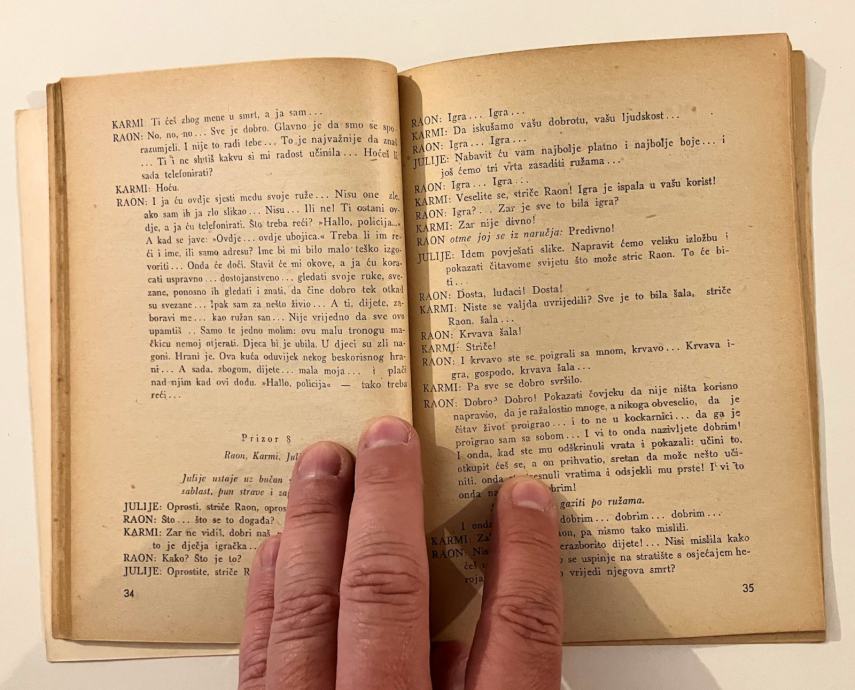 KARMI: Ti ćeš zbog mene u smrt, a ja sam...
RAON: No, no, no... Sve je dobro. Glavno je da smo se spo-
razumjeli. I nije to radi tebe... To je najvažnije da znaš
... Ti i ne shvtiš kakvu si mi radost učinila... Hoćeš li
sada telefonirati?
KARMI: Hoću.
RAON: I ja ću ovdje sjesti među svoje ruže... Nisu one zle,
ako sam ih ja zlo slikao... Nisu... Ili ne! Ti ostani ov-
dje, a ja ću telefonirati. Što treba reći? »Hallo, policija...«
A kad se jave: »Ovdje... ovdje ubojica.« Treba li im re-
ći i ime, ili samo adresu? Ime bi mi bilo malo teško izgo-
voriti... Onda će doći. Stavit će mi okove, a ja ću kora-
cati uspravno... dostojanstveno... gledati svoje ruke, sve-
zane, ponosno ih gledati i znati, da čine dobro tek otkad
su svezane... Ipak sam za nešto živio... A ti, dijete, za-
boravi me... kao ružan san... Nije vrijedno da sve ovo
upamtiš.. Samo te jedno molim: ovu malu tronogu ma-
čkicu nemoj otjerati. Djeca bi je ubila. U djeci su zli na-
goni. Hrani je. Ova kuća oduvijek nekog beskorisnog hra-
ni... A sada, zbogom, dijete... mala moja... i plači
nad njim kad ovi dođu. »Hallo, policija« — tako treba
reći...
Prizor 8
Raon, Karmi, Jul
Julije ustaje uz bučan
sablast, pun strave i
JULIJE: Oprosti, striče Raon, opros
RAON: Što... što se to događa?
KARMI: Zar ne vidiš, dobri naš
to je dječja igračka..
RAON: Kako? Što je to?
JULIJE: Oprostite, striče R
34
RAON: Igra... Igra...
KARMI: Da iskušamo vašu dobrotu, vašu ljudskost...
RAON: Igra... Igra...
JULIJE: Nabavit ću vam najbolje platno i najbolje boje... i
još ćemo tri vrta zasaditi ružama...
RAON: Igra... Igra...
KARMI: Veselite se, striče Raon! Igra je ispala u vašu korist!
RAON: Igra?.. Zar je sve to bila igra?
KARMI: Zar nije divno!
RAON otme joj se iz naručja: Predivno!
JULIJE: Idem povješati slike. Napravit ćemo veliku izložbu i
pokazati čitavome svijetu što može stric Raon. To će bi-
ti...
RAON: Dosta, luđaci! Dosta!
KARMI: Niste se valjda uvrijedili? Sve je to bila šala, striče
Raon, šala...
RAON: Krvava šala!
KARMI: Striče!
RAON: I krvavo ste se poigrali sa mnom, krvavo... Krvava i-
gra, gospodo, krvava šala...
KARMI: Pa sve se dobro svršilo.
RAON: Dobro? Dobro! Pokazati čovjeku da nije ništa korisno
napravio, da je ražalostio mnoge, a nikoga obveselio, da je
čitav život proigrao... i to ne u kockarnici... da ga je
proigrao sam sa sobom... I vi to onda nazivljete dobrim!
I onda, kad ste mu odškrinuli vrata i pokazali: učini to,
otkupit ćeš se, a on prihvatio, sretan da može nešto uči-
niti, onda resnuli vratima i odsjekli mu prste! I vi to
onda na brim!
gaziti po ružama.
I onda dobrim... dobrim... dobrim...
KARMI: Za on, pa nismo tako mislili.
RAON: Nis erazborito dijete!... Nisi mislila kako
ćeš o se uspinje na stratište s osjećajem he-
roja o vrijedi njegova smrt?
35